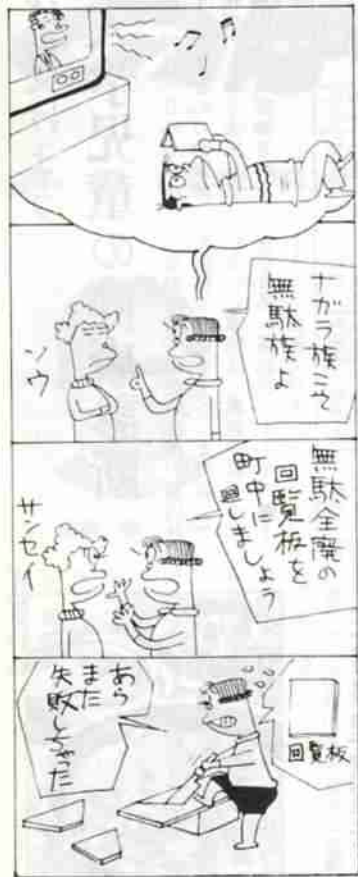 ナガラ族こそ
無駄族よ
ソウ
無駄全廃の
回覧板を
町中に
廻しましょう
サンセイ
回覧板
あら
また
失敗しちゃった